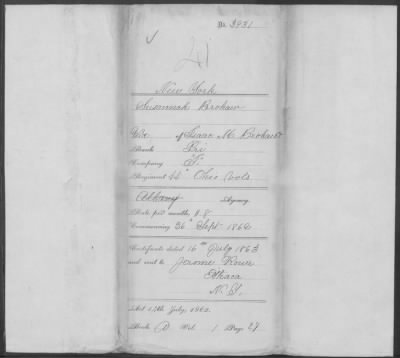 No. 3931
41
New York
Susannah Brokaw
Wid of Isaac M. Brokaw
Rank Pri
Company F.
Regiment 44" Ohio Vols
Albany Agency
Rate per month $8
Commencing 26" Sept 1862
Certificate dated 16th July 1863
and sent to Jerome Rowe
Ithaca
N. Y.
Act 14th July, 1862.
Book D Vol. 1 Page 27